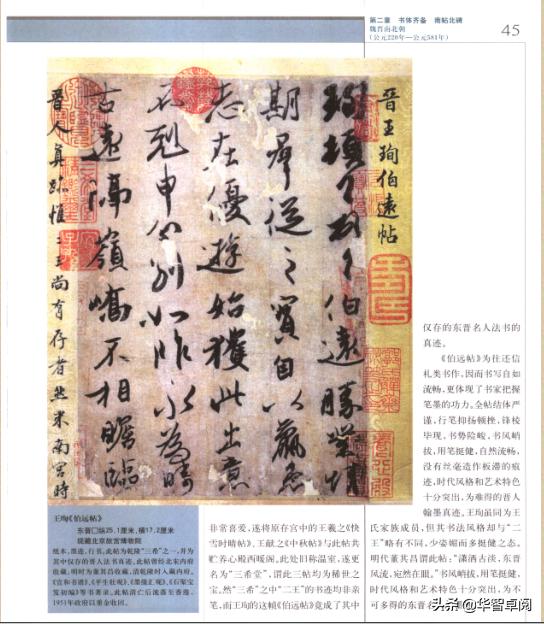 第二章 书体齐备 南帖北碑
魏晋南北朝
(公元220年—公元581年)
45
晉王珣伯遠帖
珣頓首頓首伯遠勝業情
期羣從之寶自以羸患
志在優遊始獲此出意
不剋申分别如昨永為疇
古遠隔嶺嶠不相瞻臨
晉人真跡惟二王尚有存者然米南宮時
王珣《伯远帖》
东晋□纵25.1厘米,横17.2厘米
现藏北京故宫博物院
纸本,墨迹,行书。此帖为乾隆“三希”之一,并为
其中仅存的晋人法书真迹。此帖曾经北宋内府
收藏,明时为董其昌收藏,清乾隆时入藏内府。
《宣和书谱》、《平生壮观》、《墨缘汇观》、《石渠宝
笈初编》等书著录。此帖清亡后流落至香港,
1951年政府以重金收回。
非常喜爱,遂将原存宫中的王羲之《快
雪时晴帖》、王献之《中秋帖》与此帖共
贮养心殿西暖阁。此处旧称温室,遂更
名为“三希堂”,谓此三帖均为稀世之
宝。然“三希”之中“二王”的书迹均非亲
笔,而王珣的这帧《伯远帖》竟成了其中
仅存的东晋名人法书的
真迹。
《伯远帖》为往还信
札类书作,因而书写自如
流畅,更体现了书家把握
笔墨的功力。全帖结体严
谨,行笔抑扬顿挫,锋棱
毕现,书势险峻,书风峭
拔,用笔挺健,自然流畅,
没有丝毫造作板滞的痕
迹,时代风格和艺术特色
十分突出,为难得的晋人
翰墨真迹。王珣虽同为王
氏家族成员,但其书法风格却与“二
王”略有不同,少姿媚而多挺健之态。
明代董其昌谓此帖:“潇洒古淡,东晋
风流,宛然在眼。”书风峭拔,用笔挺健,
时代风格和艺术特色十分突出,为不
可多得的东晋名
头条 @华智卓阅